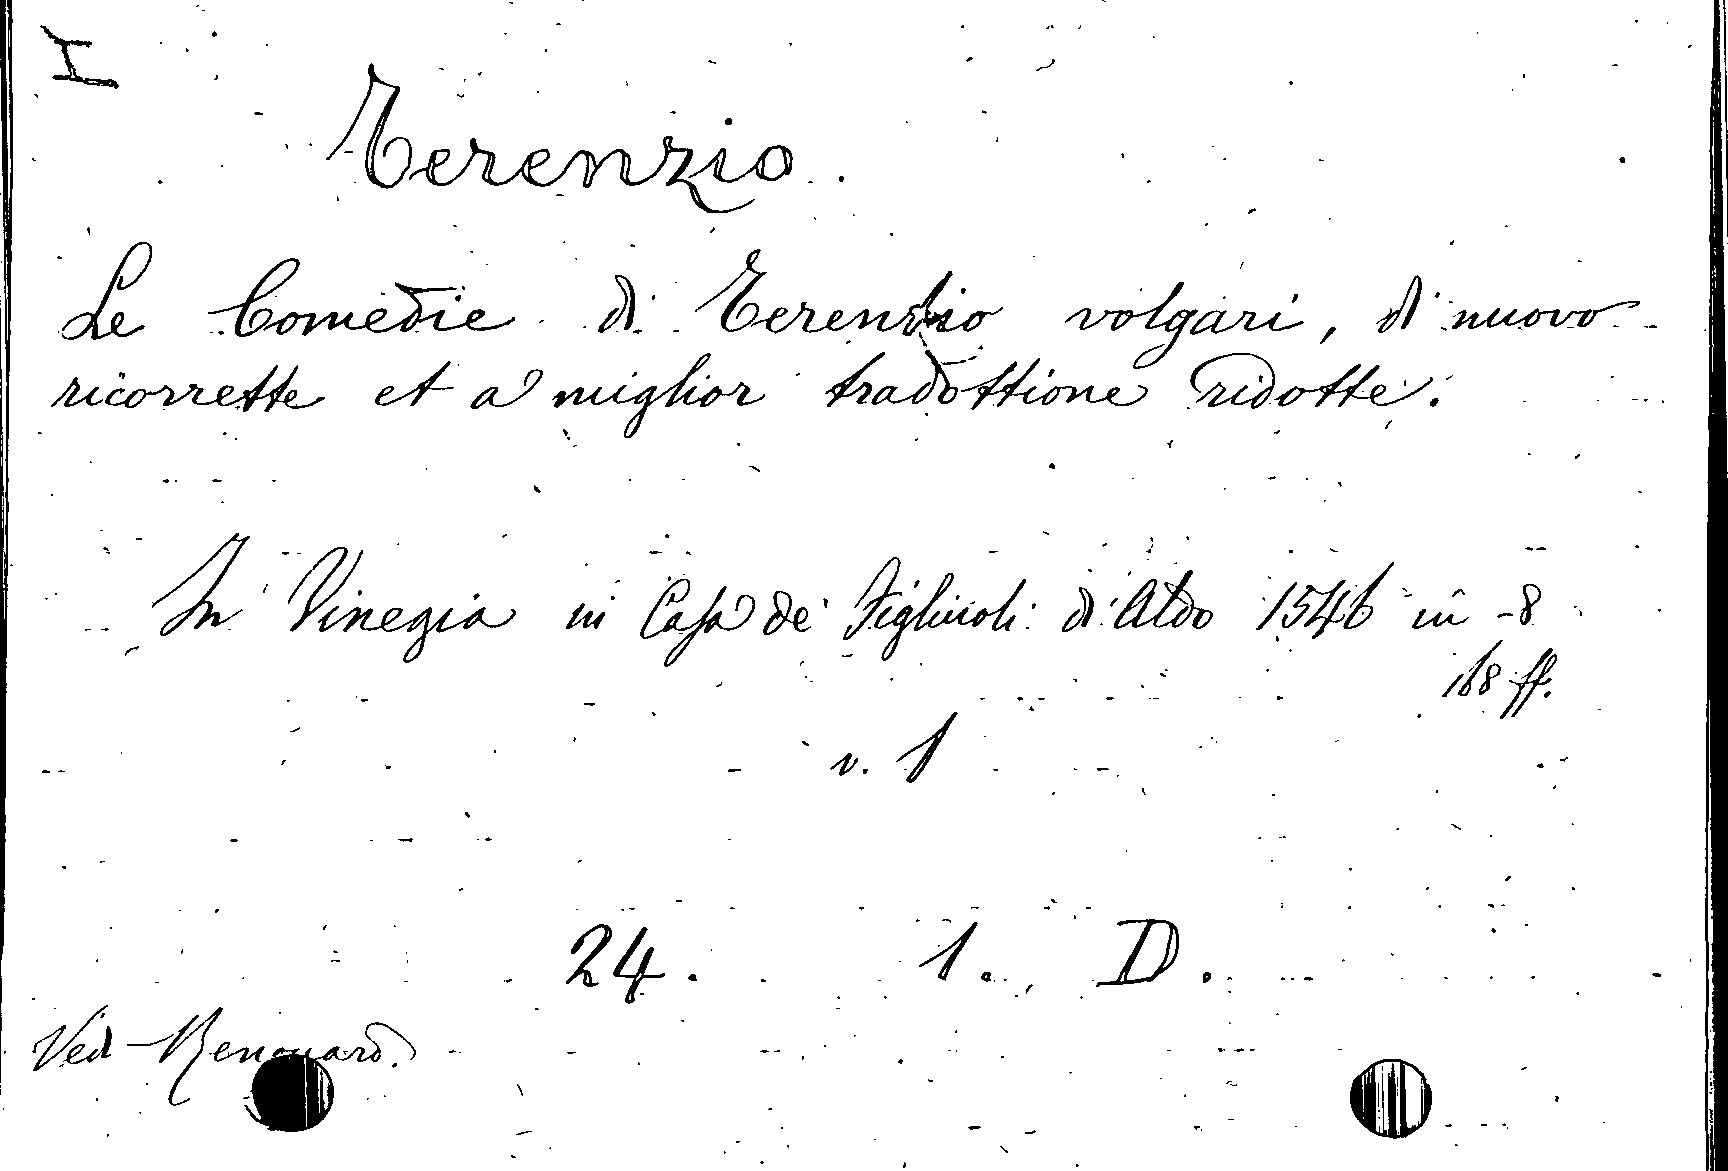 I
Terenzio.
Le Comedie di Terentio volgari, di nuovo
ricorrette et a miglior tradottione ridotte.
In Vinegia in Casa de' Figliuoli di Aldo 1546 in -8
168 ff.
v. 1
24. 1. D.
Ved. Renouard.